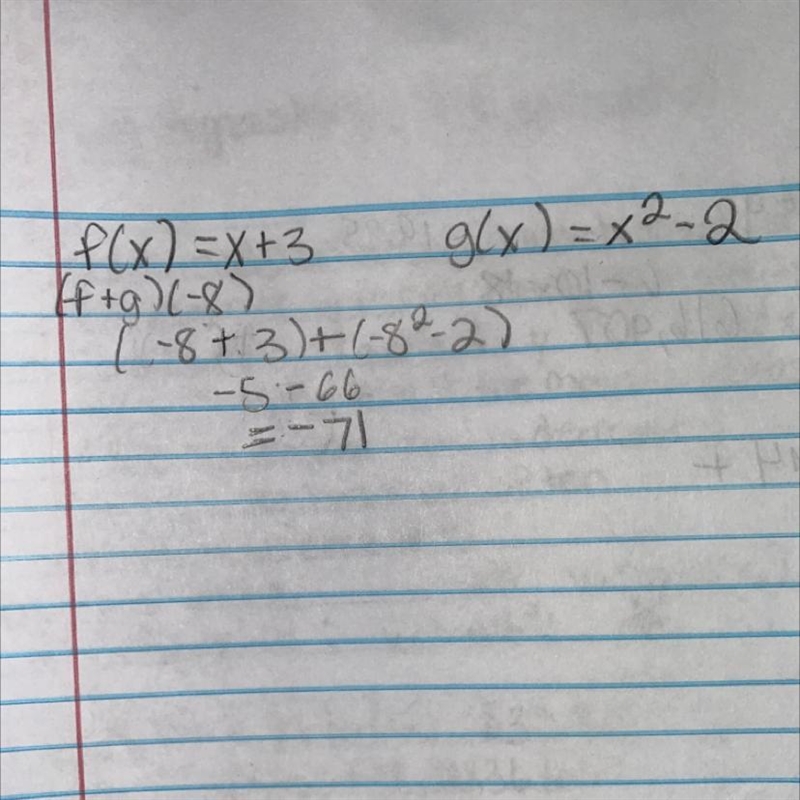 f(x) = x + 3 g(x) = x² - 2
(f+g)(-8)
(-8 + 3) + (-8² - 2)
-5 - 66
= -71